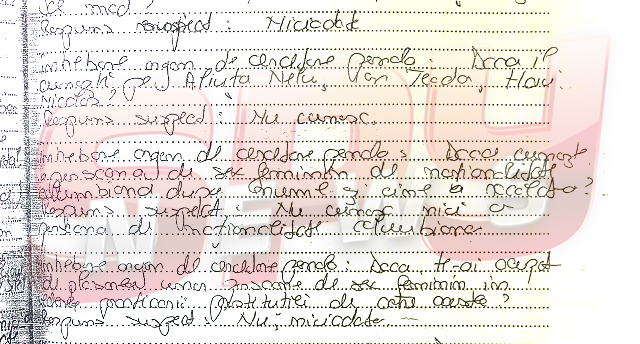 de mod?
Răspuns suspect: Niciodată
Întrebare organ de cercetare penală: Dacă îl
cunoști pe Afiuța Nelu,
Nicolae?
Răspuns suspect: Nu cunosc.
Întrebare organ de cercetare penală: Dacă cunoaște
persoană de sex feminin de naționalitate
columbiană după nume și cine e aceasta?
Răspuns suspect: Nu cunosc nici o
persoană de naționalitate columbiană
Întrebare organ de cercetare penală: Dacă te-ai ocupat
de plasarea unor persoane de sex feminin în
practicării prostituției de către aceste?
Răspuns suspect: Nu, niciodată
SPY
NEWS